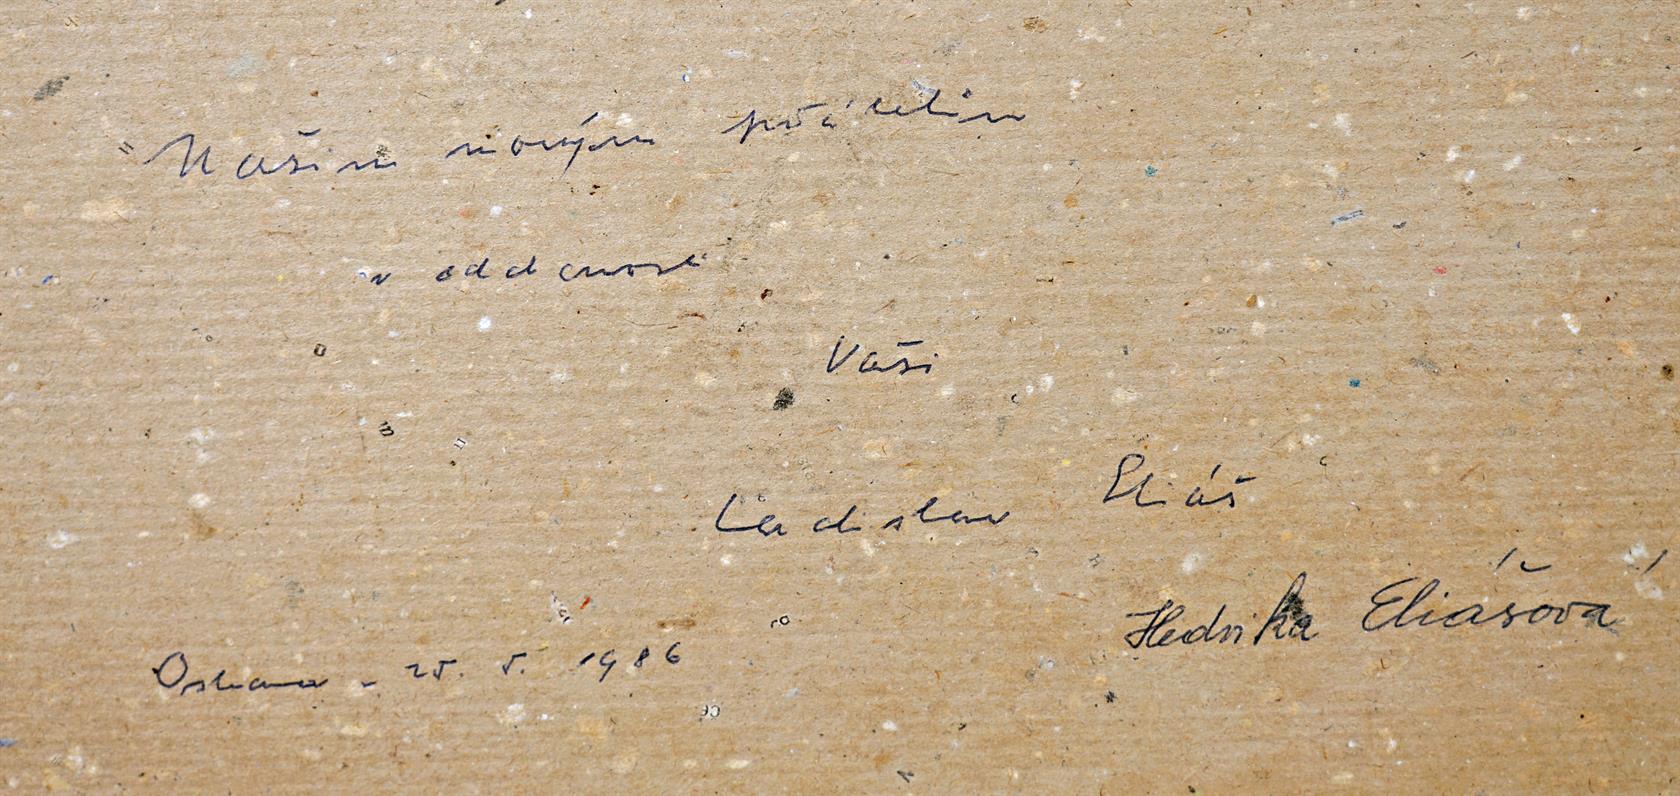 Našim novým přátelům
v oddanosti
Vaši
Ladislav Eliáš
Hedvika Eliášová
Ostrava - 25. 5. 1986